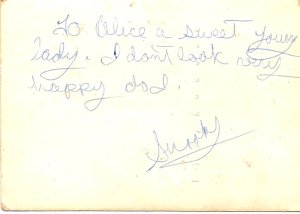 To Alice a sweet young
lady. I don't look very
happy do I.
Snooky